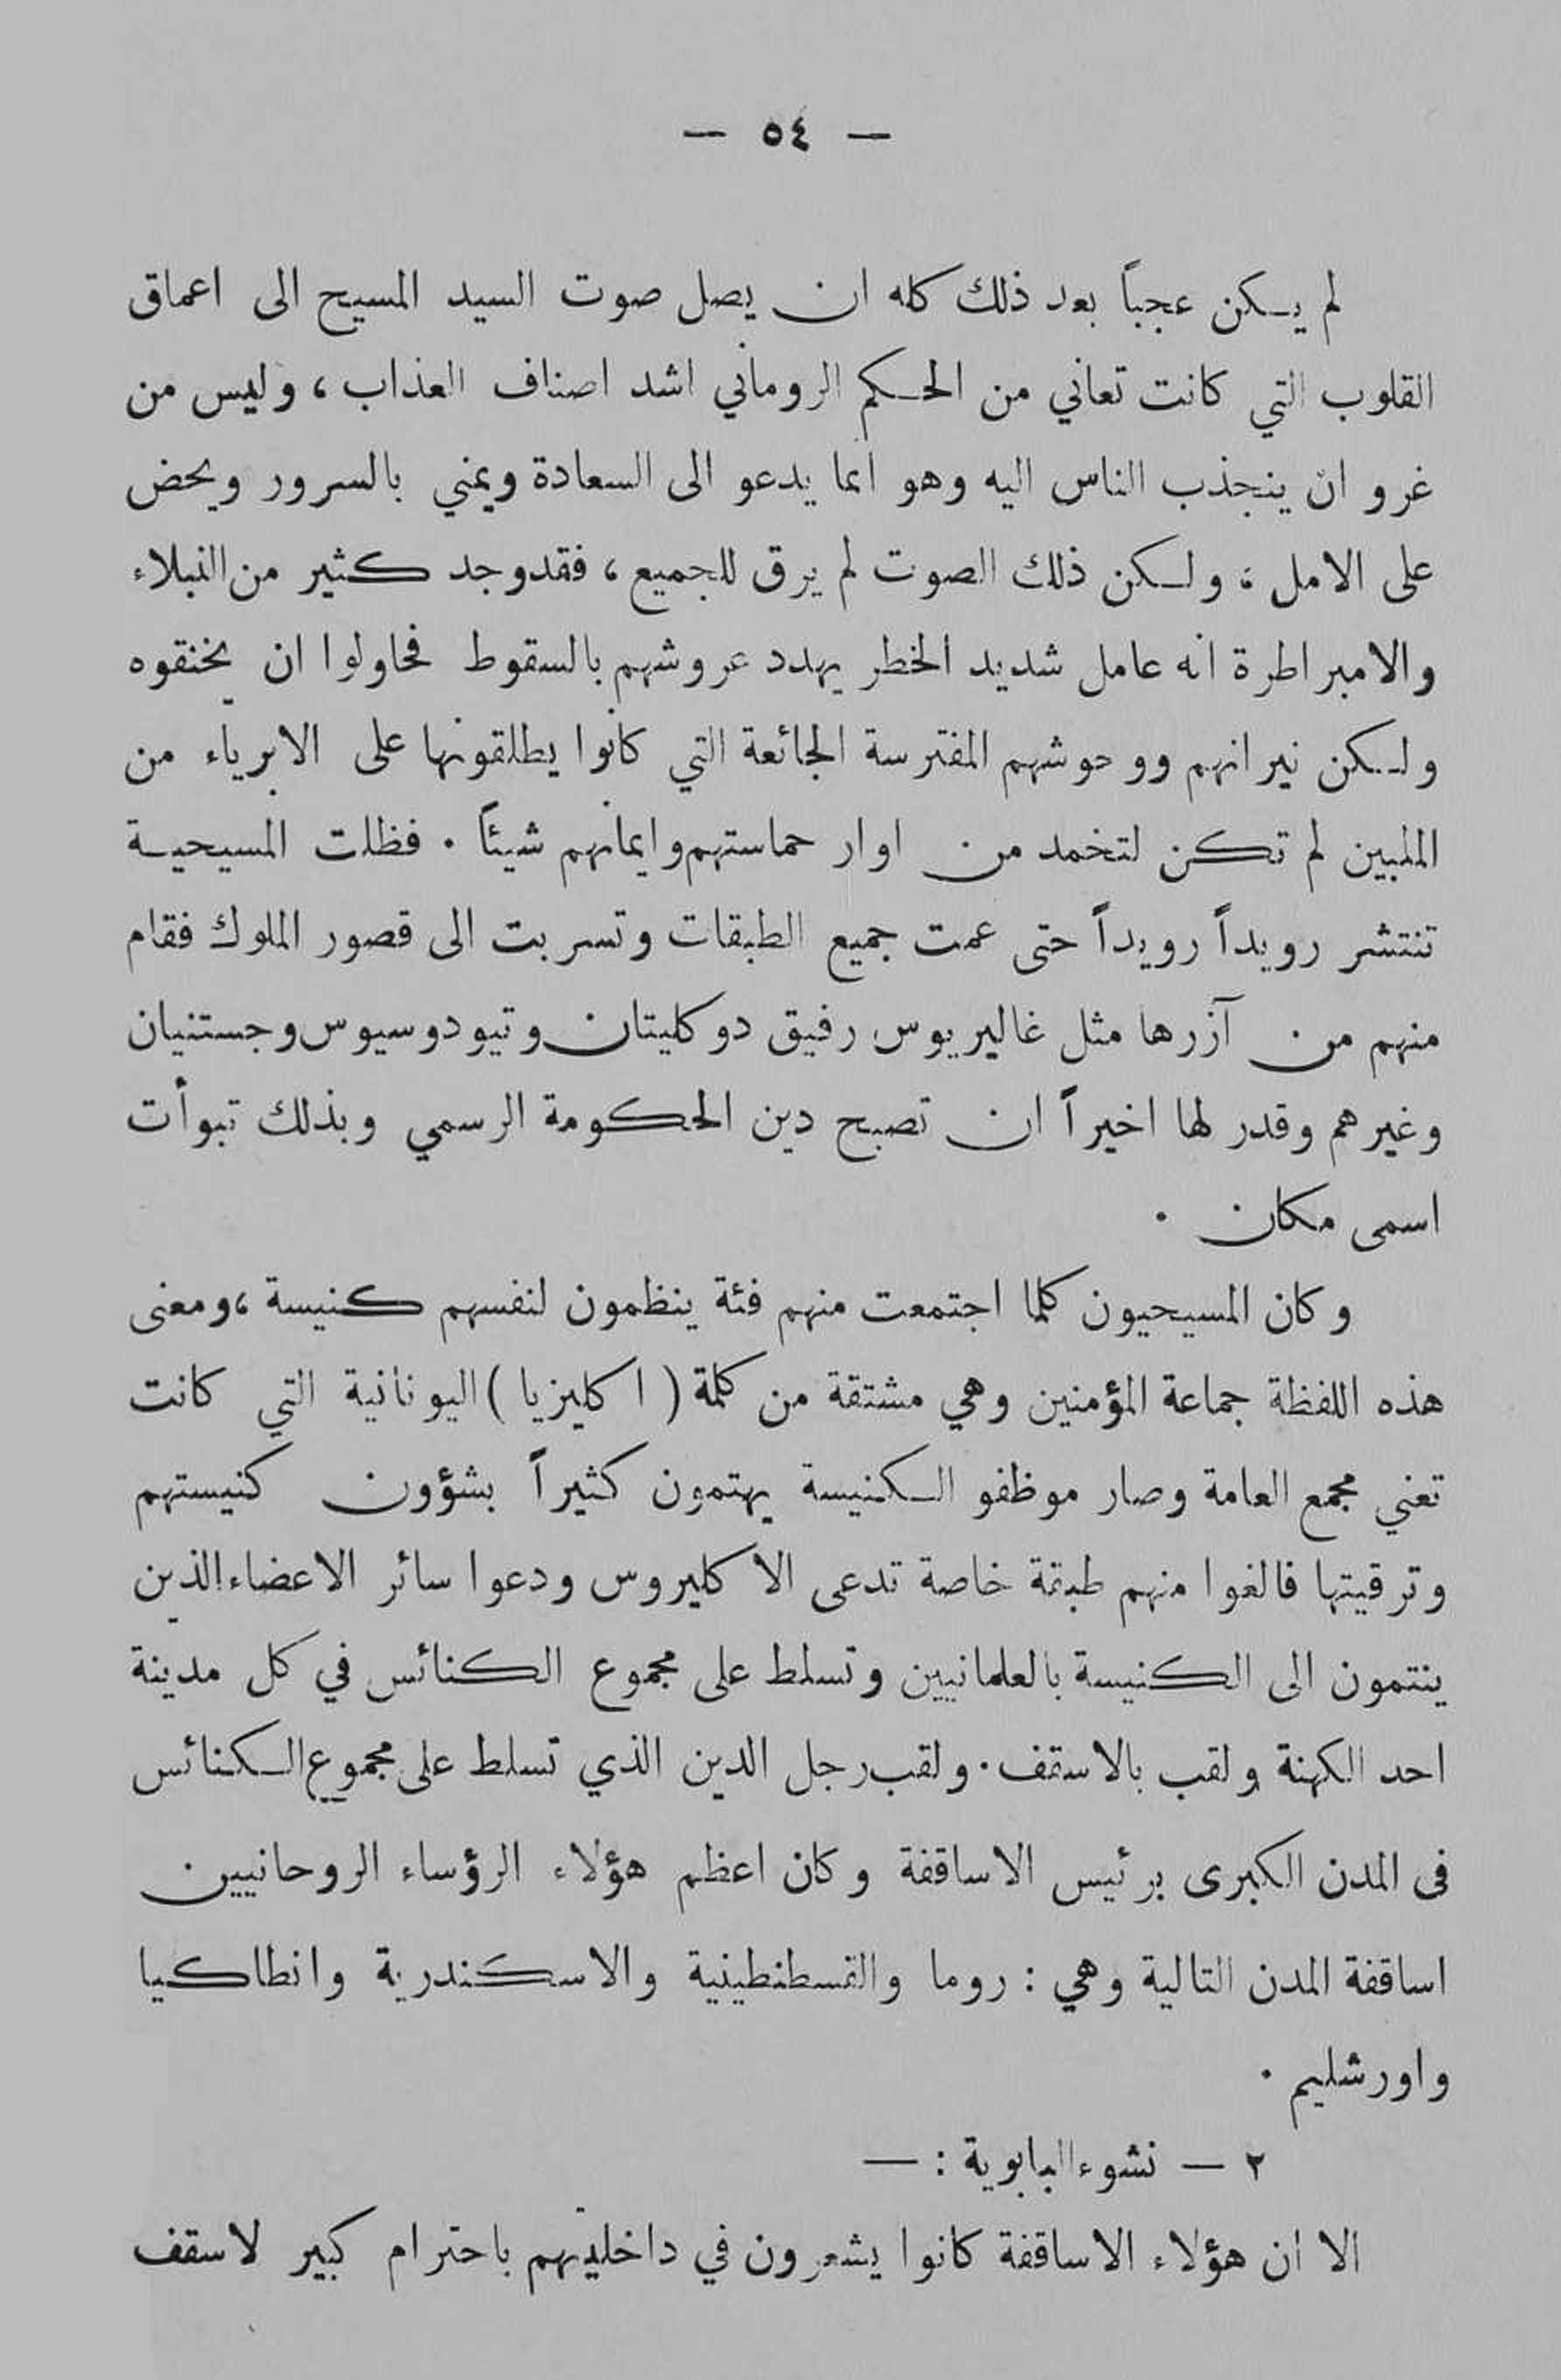 — ٥٤ —
لم يكن عجباً بعد ذلك كله ان يصل صوت السيد المسيح الى اعماق
القلوب التي كانت تعاني من الحكم الروماني اشد اصناف العذاب ، وليس من
غرو ان ينجذب الناس اليه وهو انما يدعو الى السعادة ويمني بالسرور ويحض
على الامل ؛ ولكن ذلك الصوت لم يرق للجميع ، فقد وجد كثير من النبلاء
والامبراطرة انه عامل شديد الخطر يهدد عروشهم بالسقوط فحاولوا ان يخنقوه
ولكن نيرانهم ووحوشهم المفترسة الجائعة التي كانوا يطلقونها على الابرياء من
الملبين لم تكن لتخمد من اوار حماستهم وايمانهم شيئاً . فظلت المسيحية
تنتشر رويداً رويداً حتى عمت جميع الطبقات وتسربت الى قصور الملوك فقام
منهم من آزرها مثل غاليريوس رفيق دوكليتان وتيودوسيوس وجستنيان
وغيرهم وقدر لها اخيراً ان تصبح دين الحكومة الرسمي وبذلك تبوأت
اسمى مكان .
وكان المسيحيون كلما اجتمعت منهم فئة ينظمون لنفسهم كنيسة ، ومعنى
هذه اللفظة جماعة المؤمنين وهي مشتقة من كلمة ( اكليزيا ) اليونانية التي كانت
تعني مجمع العامة وصار موظفو الكنيسة يهتمون كثيراً بشؤون كنيستهم
وترقيتها فالفوا منهم طبقة خاصة تدعى الاكليروس ودعوا سائر الاعضاء الذين
ينتمون الى الكنيسة بالعلمانيين وتسلط على مجموع الكنائس في كل مدينة
احد الكهنة ولقب بالاسقف . ولقب رجل الدين الذي تسلط على مجموع الكنائس
في المدن الكبرى برئيس الاساقفة وكان اعظم هؤلاء الرؤساء الروحانيين
اساقفة المدن التالية وهي : روما والقسطنطينية والاسكندرية وانطاكيا
واورشليم .
٢ — نشوء البابوية : —
الا ان هؤلاء الاساقفة كانوا يشعرون في داخليتهم باحترام كبير لاسقف